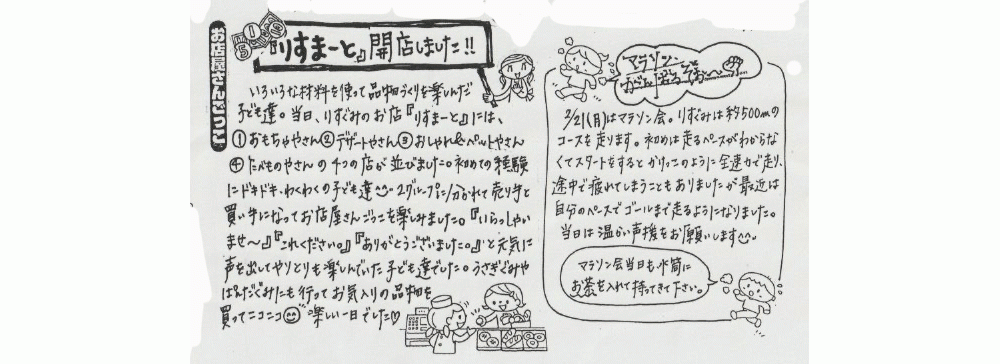 お店屋さんごっこ
『りすまーと』開店しました!!
いろいろな材料を使って品物づくりを楽しんだ
子ども達。当日、りすぐみのお店『りすまーと』には、
①おもちゃやさん②デザートやさん③おしゃれ&ペットやさん
④たべものやさんの4つの店が並びました。初めての経験
にドキドキ・わくわくの子ども達 2グループに分かれて売り手と
買い手になってお店屋さんごっこを楽しみました。『いらっしゃい
ませ〜』『これください。』『ありがとうございました。』と元気に
声を出してやりとりも楽しんでいた子ども達でした。うさぎぐみや
ぱんだぐみにも行ってお気入りの品物を
買ってニコニコ 楽しい一日でした♡
マラソン
がんばるぞぉ〜
2/21(月)はマラソン会。りすぐみは約500mの
コースを走ります。初めは走るペースがわからな
くてスタートをするとかけっこのように全速力で走り、
途中で疲れてしまうこともありましたが最近は
自分のペースでゴールまで走るようになりました。
当日は温かい声援をお願いします。
マラソン会当日も水筒に
お茶を入れて持ってきて下さい。